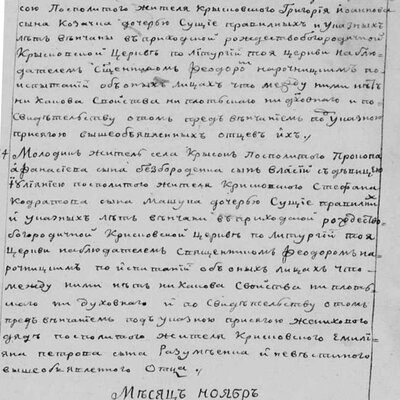 сою Посполитого Жителя Крысовского Григорія Іоаннова
сына Козачка дочерью Сущіе правилныхъ и указныхъ
лѣтъ вѣнчаны въ приходной рождествобогородичной
Крысовской Церквѣ по літургіи тоя Церкви наблю
дателемъ Сщенникомъ Феодоромъ нарочницкимъ по
испытаніи обоныхъ лицахъ что между ними нѣтъ
ни Какова Свойства ни плотскаго ни духовнаго и по
Свидѣтельству отомъ предъ вѣнчаніемъ подъ указною
присягою вышеобъявленныхъ отцевъ ихъ
Молодикъ житель села Крысокъ Посполитого Прокопа
Афанасіева сына Безбороденка сынъ Власій съ дѣвицею
Евгеніею посполитого жителя Крисковского Стефана
Кодратова сына Машука дочерью Сущіе правилнихъ
и указныхъ лѣтъ вѣнчани въ приходной рождество
богородичной Крисковской Церквѣ по литургіи тоя
Церкви наблюдателемъ Священникомъ Феодоромъ на
рочницкимъ по испитаніи обоныхъ лицахъ что
между ними нѣтъ ни Какова Свойства ни плотъ
скаго ни духовнаго и по Свидѣтельству отомъ
предъ вѣнчаніемъ подъ указною присягою женихового
дядъ посполитого жителя Крисковского Емилі
яна петрова сына Разумѣенка и невѣстиного
вышеобъявленного Отца
Мѣсяцъ ноябръ